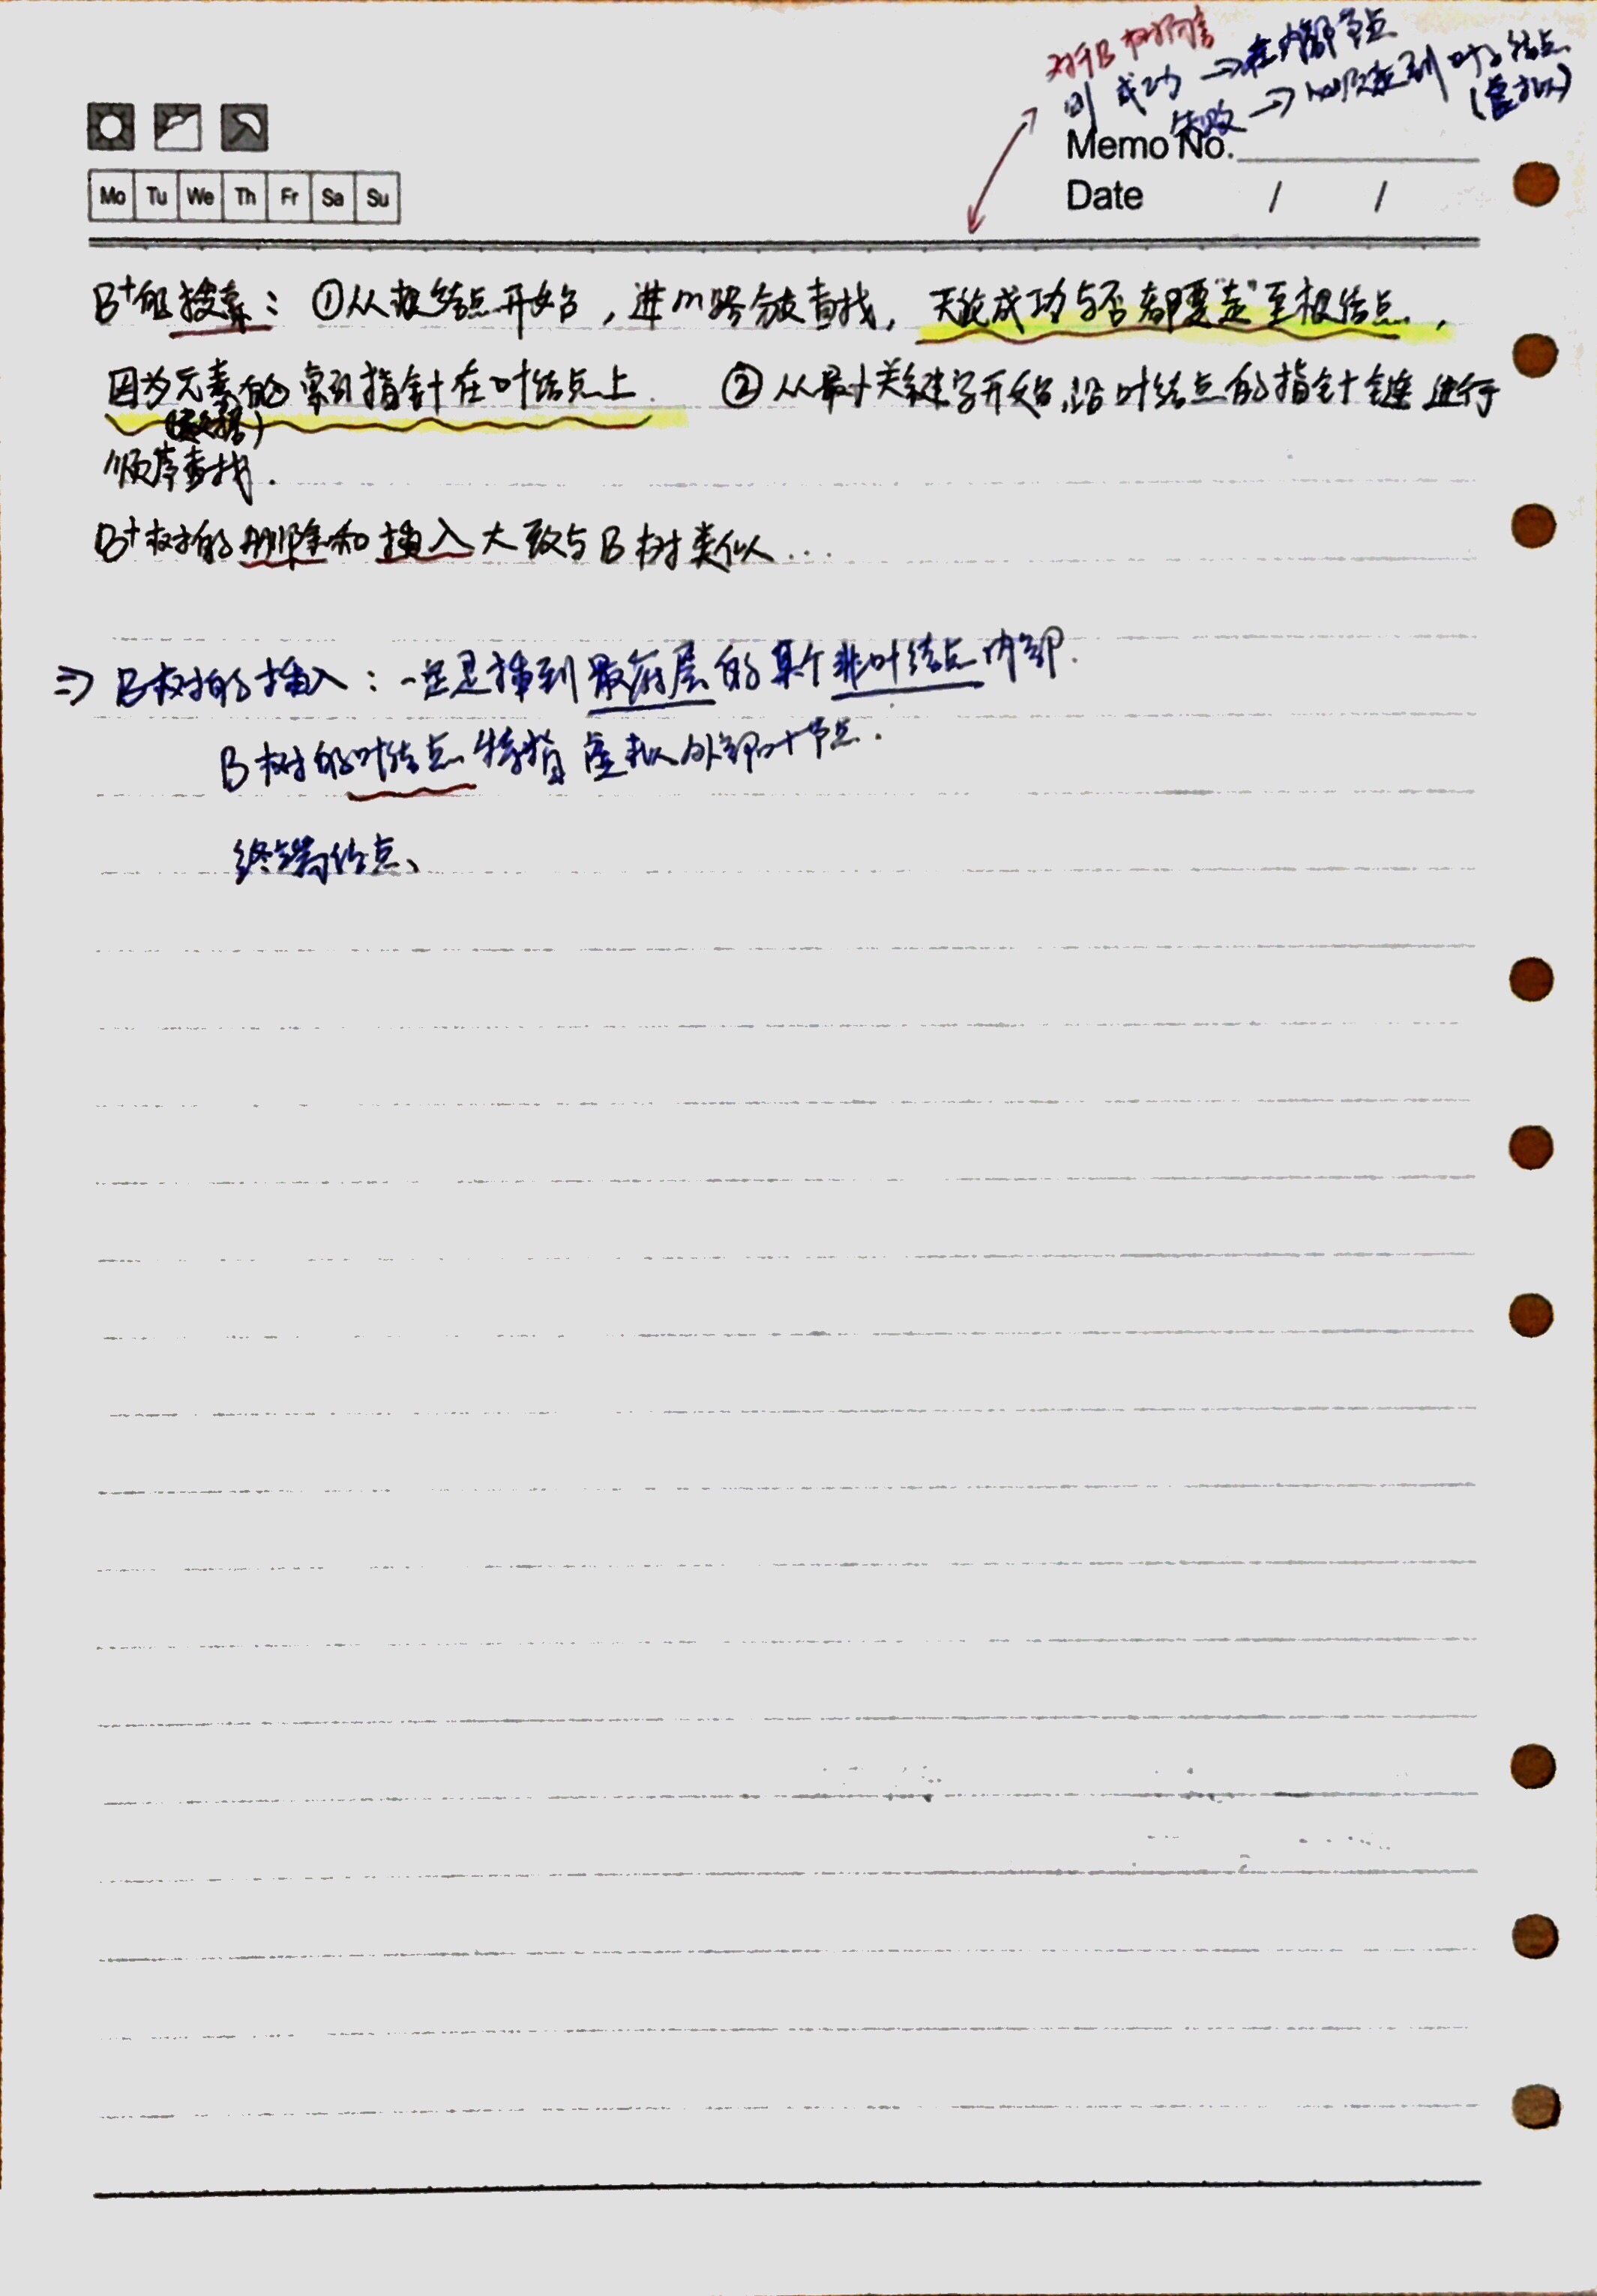 对于B树而言
则 成功 → 在内部节点
失败 → 叶子结点
(虚拟)
Memo No.
Date / /
Mo Tu We Th Fr Sa Su
B+的搜索：①从根结点开始，进m路分支查找，无论成功与否都要"走"至根结点，
因为元素的索引指针在叶结点上 ②从最小关键字开始，沿叶结点的指针链进行
顺序查找.
B+树的删除和插入大致与B树类似...
⇒ B树的插入：一定是插到最底层的某个非叶结点内部.
B树的叶结点特指虚拟外部叶节点.
终端结点、